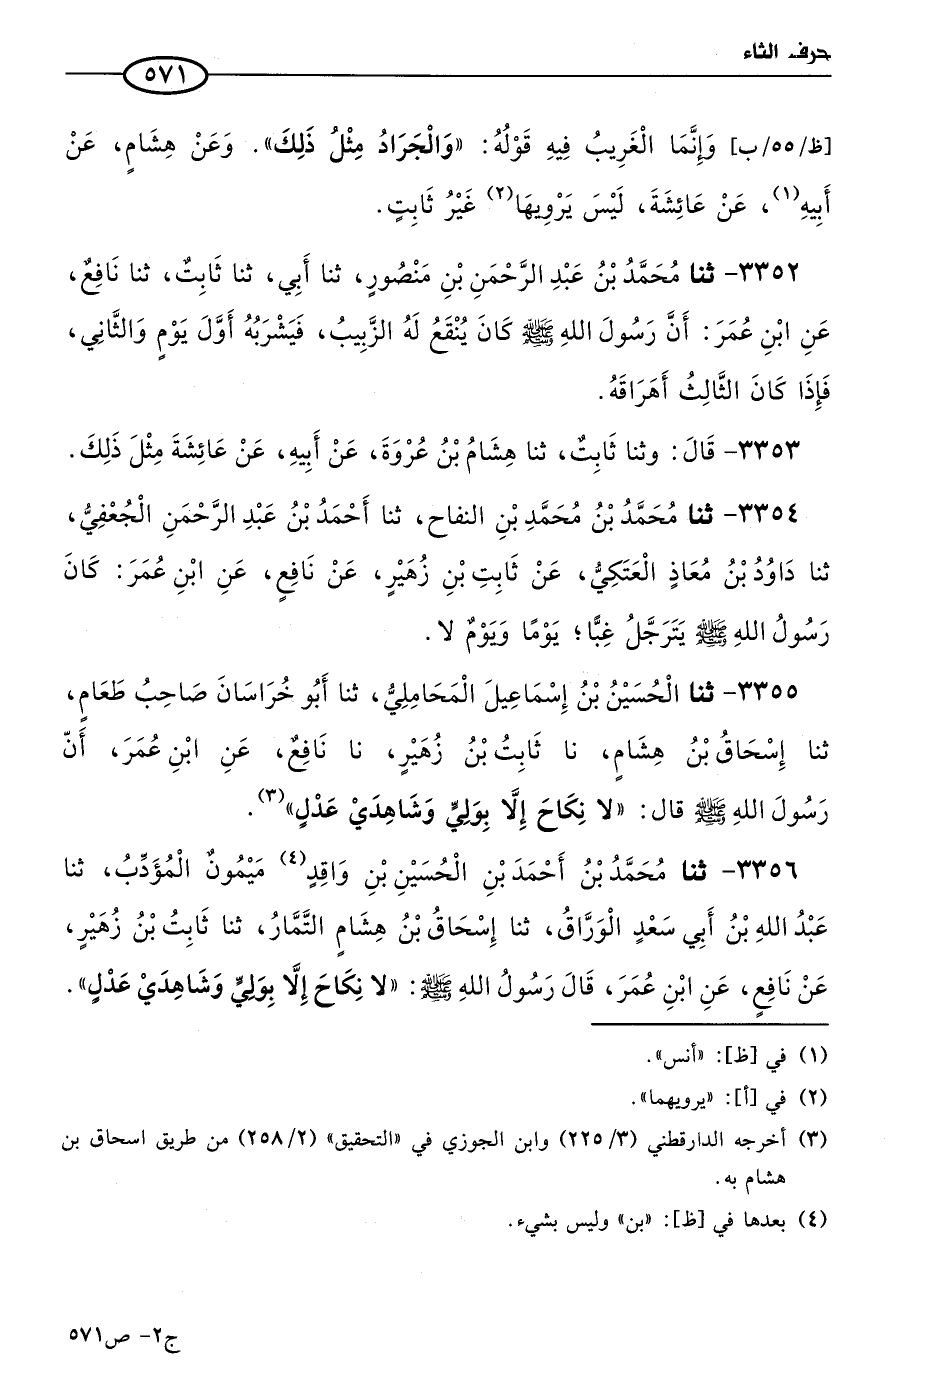 حرف الثاء
٥٧١
[ظ/٥٥/ب] وَإِنَّمَا الْغَرِيبُ فِيهِ قَوْلُهُ: «وَالْجَرَادُ مِثْلُ ذَلِكَ». وَعَنْ هِشَامٍ، عَنْ
أَبِيهِ(١)، عَنْ عَائِشَةَ، لَيْسَ يَرْوِيهَا(٢) غَيْرُ ثَابِتٍ.
٣٣٥٢- ثنا مُحَمَّدُ بْنُ عَبْدِ الرَّحْمَنِ بْنِ مَنْصُورٍ، ثنا أَبِي، ثنا ثَابِتٌ، ثنا نَافِعٌ،
عَنِ ابْنِ عُمَرَ: أَنَّ رَسُولَ اللهِ ﷺ كَانَ يُنْقَعُ لَهُ الزَّبِيبُ، فَيَشْرَبُهُ أَوَّلَ يَوْمٍ وَالثَّانِي،
فَإِذَا كَانَ الثَّالِثُ أَهَرَاقَهُ.
٣٣٥٣- قَالَ: وثنا ثَابِتٌ، ثنا هِشَامُ بْنُ عُرْوَةَ، عَنْ أَبِيهِ، عَنْ عَائِشَةَ مِثْلَ ذَلِكَ.
٣٣٥٤- ثنا مُحَمَّدُ بْنُ مُحَمَّدِ بْنِ النفاح، ثنا أَحْمَدُ بْنُ عَبْدِ الرَّحْمَنِ الْجُعْفِيُّ،
ثنا دَاوُدُ بْنُ مُعَاذٍ الْعَتَكِيُّ، عَنْ ثَابِتِ بْنِ زُهَيْرٍ، عَنْ نَافِعٍ، عَنِ ابْنِ عُمَرَ: كَانَ
رَسُولُ اللهِ ﷺ يَتَرَجَّلُ غِبًّا؛ يَوْمًا وَيَوْمٌ لا.
٣٣٥٥- ثنا الْحُسَيْنُ بْنُ إِسْمَاعِيلَ الْمَحَامِلِيُّ، ثنا أَبُو خُرَاسَانَ صَاحِبُ طَعَامٍ،
ثنا إِسْحَاقُ بْنُ هِشَامٍ، نا ثَابِتُ بْنُ زُهَيْرٍ، نا نَافِعٌ، عَنِ ابْنِ عُمَرَ، أَنّ
رَسُولَ اللهِ ﷺ قال: «لا نِكَاحَ إِلَّا بِوَلِيٍّ وَشَاهِدَيْ عَدْلٍ»(٣).
٣٣٥٦- ثنا مُحَمَّدُ بْنُ أَحْمَدَ بْنِ الْحُسَيْنِ بْنِ وَاقِدٍ(٤) مَيْمُونٌ الْمُؤَدِّبُ، ثنا
عَبْدُ اللهِ بْنُ أَبِي سَعْدٍ الْوَرَّاقُ، ثنا إِسْحَاقُ بْنُ هِشَامٍ التَّمَّارُ، ثنا ثَابِتُ بْنُ زُهَيْرٍ،
عَنْ نَافِعٍ، عَنِ ابْنِ عُمَرَ، قَالَ رَسُولُ اللهِ ﷺ: «لا نِكَاحَ إِلَّا بِوَلِيٍّ وَشَاهِدَيْ عَدْلٍ».
(١) في [ظ]: «أنس».
(٢) في [أ]: «يرويهما».
(٣) أخرجه الدارقطني (٣/ ٢٢٥) وابن الجوزي في «التحقيق» (٢/ ٢٥٨) من طريق اسحاق بن
هشام به.
(٤) بعدها في [ظ]: «بن» وليس بشيء.
ج٢- ص٥٧١